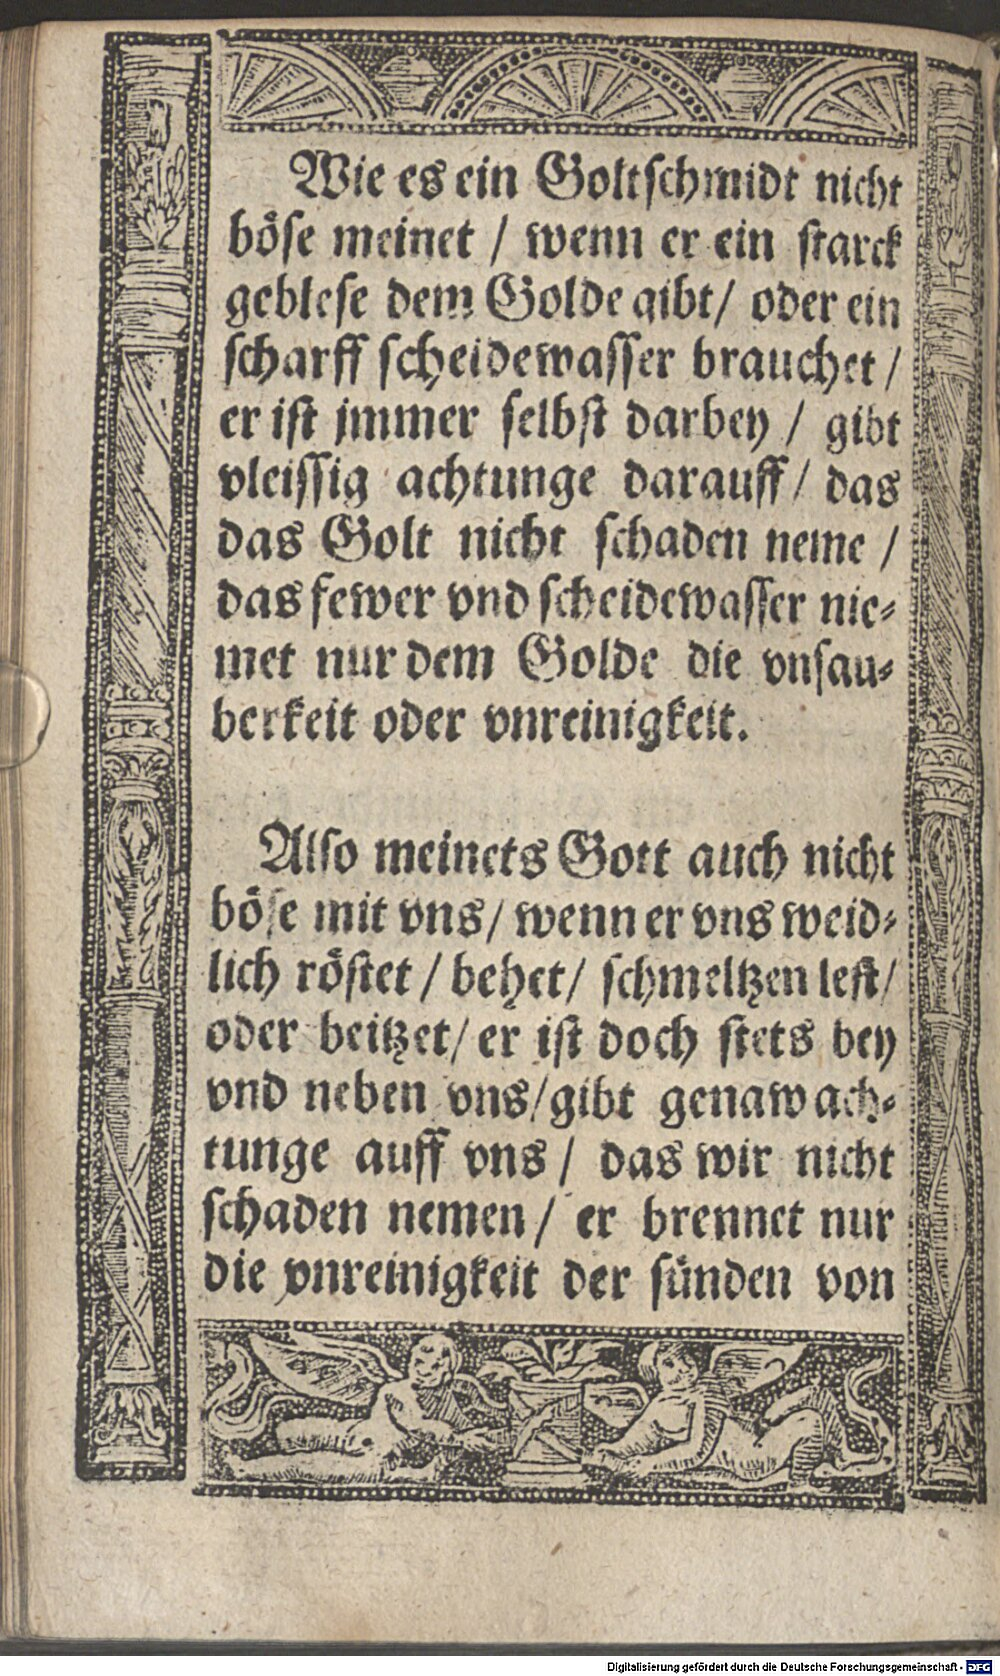 Wie es ein Goltschmidt nicht
böse meinet / wenn er ein starck
geblese dem Golde gibt / oder ein
scharff scheidewasser brauchet /
er ist jmmer selbst darbey / gibt
vleissig achtunge darauff / das
das Golt nicht schaden neme /
das fewer vnd scheidewasser nie⸗
met nur dem Golde die vnsau⸗
berkeit oder vnreinigkeit.
Also meinets Gott auch nicht
böse mit vns / wenn er vns weid⸗
lich röstet / behet / schmeltzen lest /
oder beitzet / er ist doch stets bey
vnd neben vns / gibt genaw ach⸗
tunge auff vns / das wir nicht
schaden nemen / er brennet nur
die vnreinigkeit der sünden von
Digitalisierung gefördert durch die Deutsche Forschungsgemeinschaft - DFG